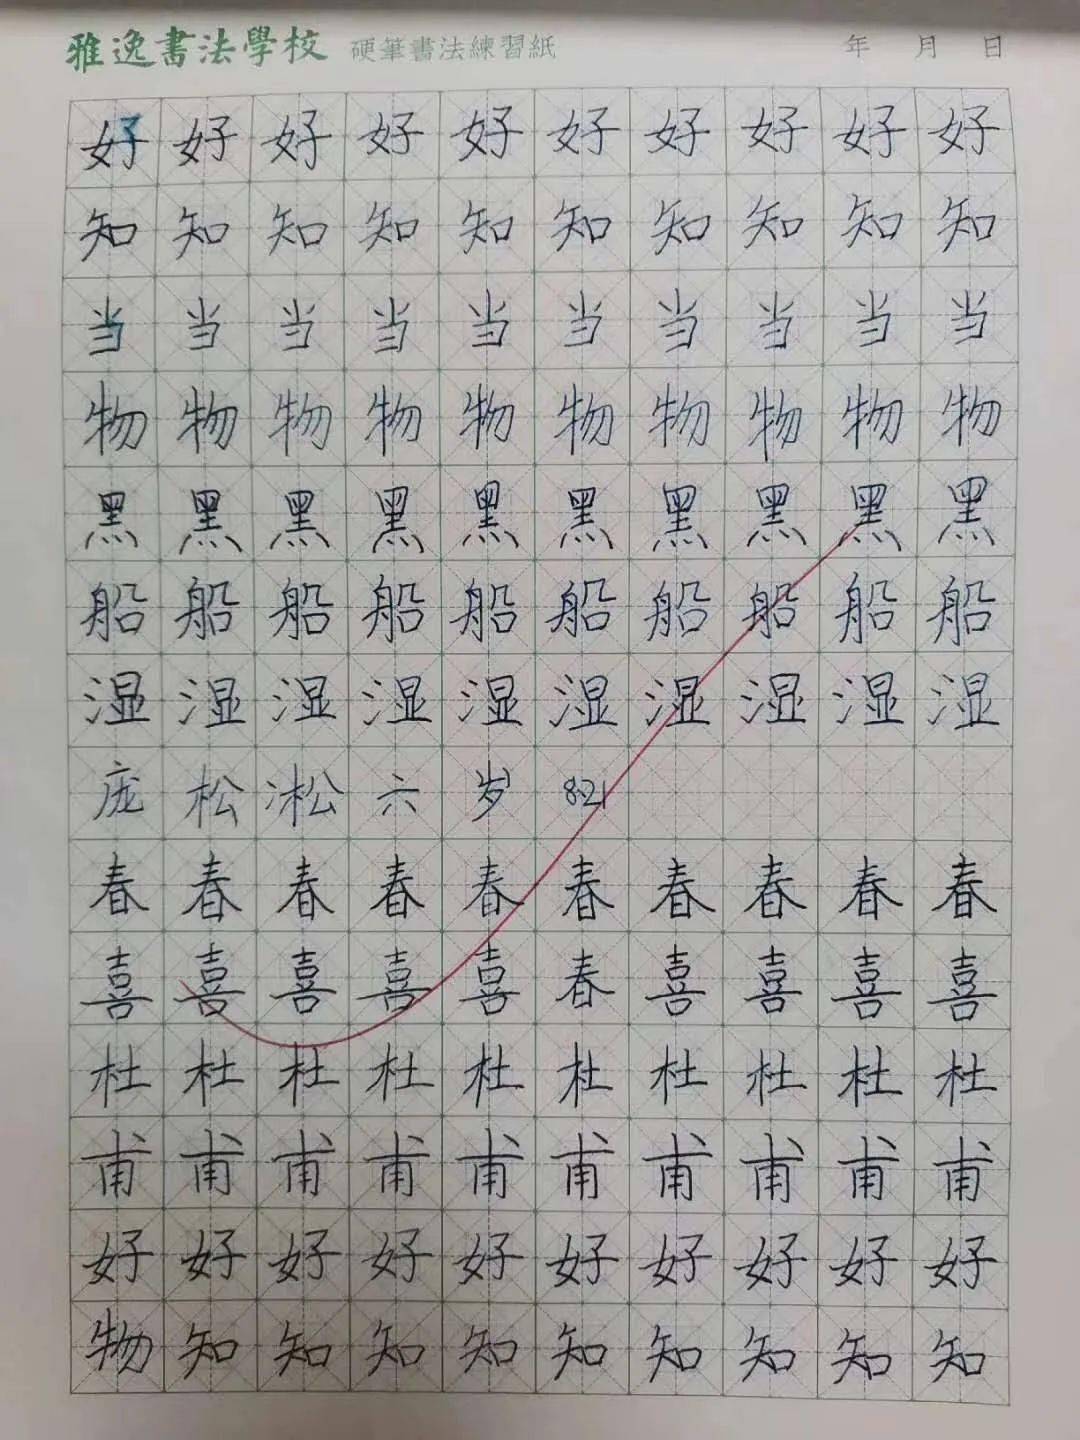 雅逸書法學校 硬筆書法練習紙 年 月 日
好好好好好好好好好好
知知知知知知知知知知
当当当当当当当当当当
物物物物物物物物物物
黑黑黑黑黑黑黑黑黑黑
船船船船船船船船船船
湿湿湿湿湿湿湿湿湿湿
庞松凇六岁8.21
春春春春春春春春春春
喜喜喜喜喜春喜喜喜喜
杜杜杜杜杜杜杜杜杜杜
甫甫甫甫甫甫甫甫甫甫
好好好好好好好好好好
物知知知知知知知知知